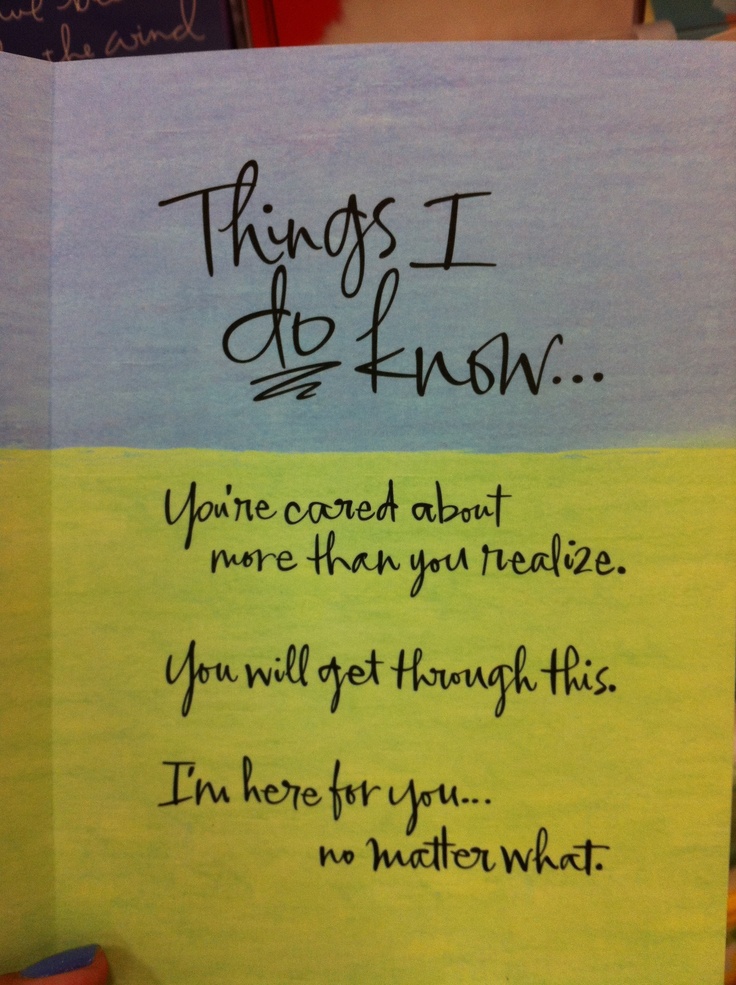 the wind
Things I
do know...
You're cared about
more than you realize.
You will get through this.
I'm here for you...
no matter what.